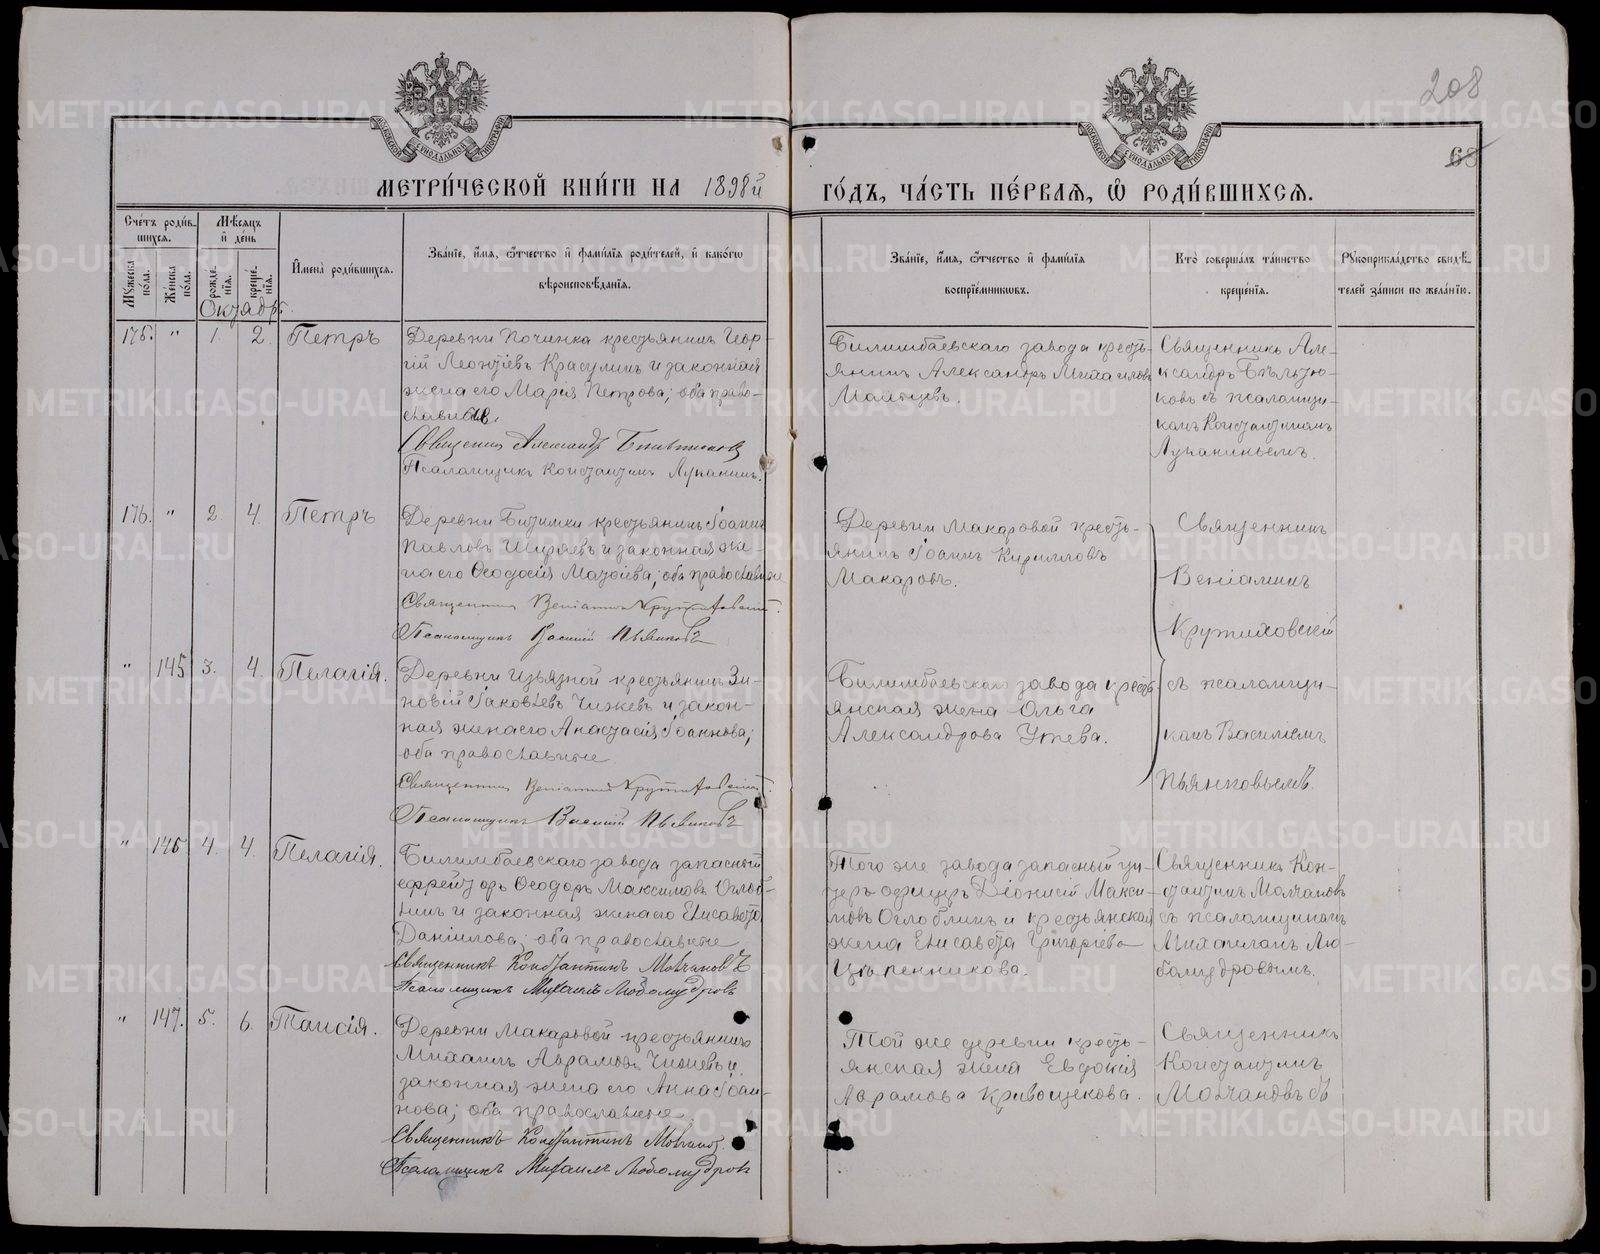 208
68
МОСКОВСКОЙ СѴНОДАЛЬНОЙ ТИПОГРАФІИ
МОСКОВСКОЙ СѴНОДАЛЬНОЙ ТИПОГРАФІИ
МЕТРИ́ЧЕСКОЙ КНИ́ГИ НА 1898й ГО́ДЪ, ЧА́СТЬ ПЕ́РВАЯ, Ѽ РОДИ́ВШИХСЯ.
Сче́тъ роди́в-
шихся.
Му́жеска по́ла.
Же́нска по́ла.
Мѣ́сяцъ и҆ де́нь
рожде́нїѧ.
креще́нїѧ.
И҆мена̀ роди́вшихсѧ.
Зва́нїе, и҆́мѧ, ѻ҆́тчество и҆ фами́лїѧ роди́телей, и҆ како́гѡ
вѣроисповѣ́данїѧ.
Зва́нїе, и҆́мѧ, ѻ҆́тчество и҆ фами́лїѧ
воспрїе́мникѡвъ.
Кто̀ соверша́лъ та́инство
креще́нїѧ.
Рꙋкоприкла́дство свидѣ́-
телей за́писи по жела́нїю.
Октябрь
175. " 1. 2. Петръ
Деревни Починка крестьянинъ Геор-
гій Леонтіевъ Красулинъ и законная
жена его Марія Петрова; оба право-
славные.
Священникъ Александръ
Псаломщикъ Константинъ Луканинъ.
Билимбаевскаго завода кресть-
янинъ Александръ Михаиловъ
Священникъ Але-
ксандръ
ковъ съ псаломщи-
комъ Константиномъ
Луканинымъ.
176. " 2. 4. Петръ
Деревни Битимки крестьянинъ Іоаннъ
Павловъ Ширяевъ и законная же-
на его Ѳеодосія Матѳіева; оба православные
Священникъ Веніаминъ Кружиховскій.
Псаломщикъ Василій Пьянковъ
Деревни Макаровой кресть-
янинъ Іоаннъ Кирилловъ
Макаровъ.
Священникъ
Веніаминъ
Кружиховскій
" 145 3. 4. Пелагія.
Деревни Извязной крестьянинъ Зи-
новій Іаковлевъ Чижевъ и закон-
ная жена его Анастасія Іоаннова;
оба православные
Священникъ Веніаминъ Кружиховскій.
Псаломщикъ Василій Пьянковъ
Билимбаевскаго завода кресть-
янская жена Ольга
Александрова Утева.
съ псаломщи-
комъ Василіемъ
Пьянковымъ.
" 146. 4. 4. Пелагія.
Билимбаевскаго завода запасный
ефрейторъ Ѳеодоръ Максимовъ Оглоб-
линъ и законная жена его Елисавета
Даніилова; оба православные
Священникъ Константинъ Молчановъ
Псаломщикъ Михаилъ Любомудровъ
Того же завода запасный ун-
теръ-офицеръ Діонисій Макси-
мовъ Оглоблинъ и крестьянская
жена Елисавета Григоріева
Цыпенникова.
Священникъ Кон-
стантинъ Молчановъ
съ псаломщикомъ
Михаиломъ Лю-
бомудровымъ.
" 147. 5. 6. Таисія.
Деревни Макаровой крестьянинъ
Михаилъ Аврамовъ Чижевъ и
законная жена его Анна Іоан-
нова; оба православные
Священникъ Константинъ Молчановъ
Псаломщикъ Михаилъ Любомудровъ
Той же деревни кресть-
янская жена Евдокія
Аврамова Кривощекова.
Священникъ
Константинъ
Молчановъ съ
METRIKI.GASO-URAL.RU